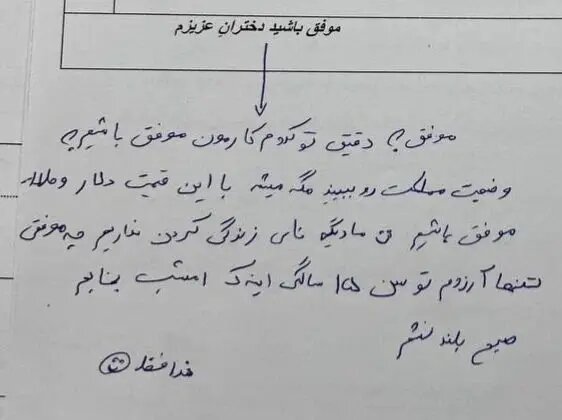 موفق باشید دختران عزیزم
موفق چی دقیق تو کدوم کارمون موفق باشیم چی
وضعیت مملکت رو ببینید مگه میشه با این قیمت دلار و طلا
موفق باشیم من مادیگه نای زندگی کردن نداریم چه موفقی
تنها آرزوم تو سن 15 سالگی اینه که امشب بخوابم
صبح بلند نشم
خدافظ